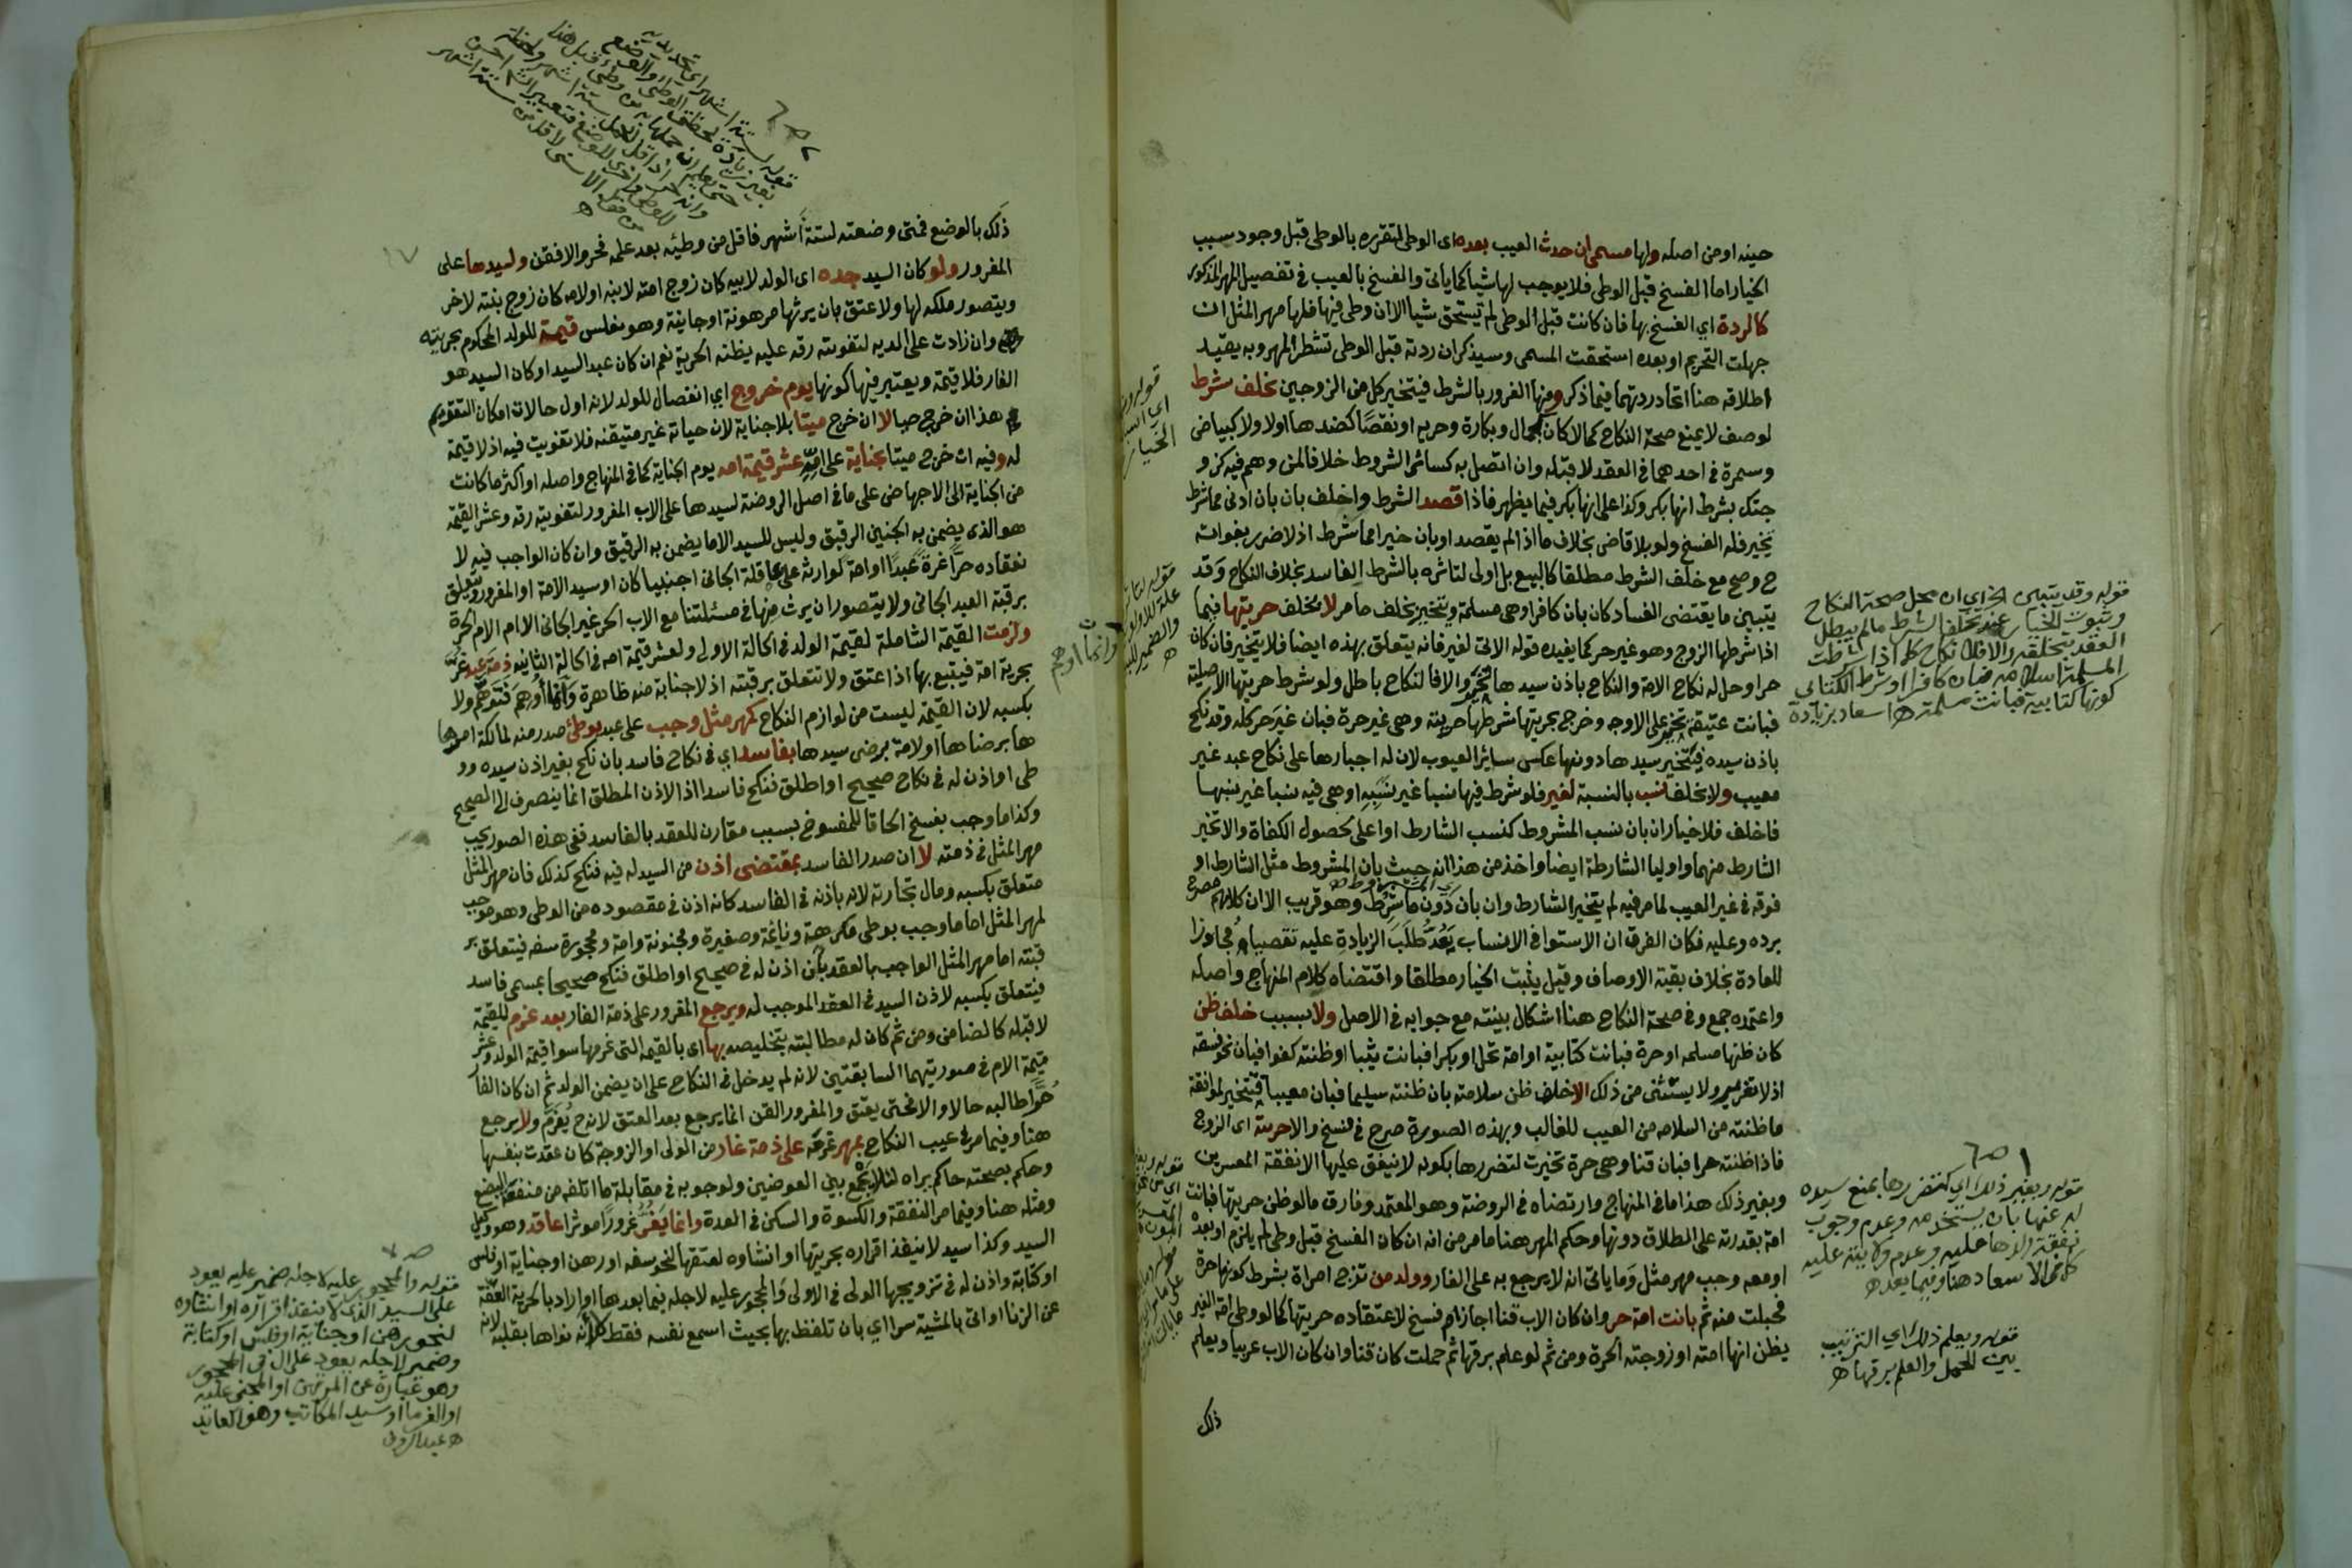 حينه او من اصله ولها مسمى ان حدث العيب بعده اى الوطى لتقرره بالوطى قبل وجود سبب
الخيار اما الفسخ قبل الوطى فلا يوجب لها شيأ كما ياتى والفسخ بالعيب فى تفصيل المهر المذكور
كالردة اي الفسخ بها فان كانت قبل الوطى لم تستحق شيا الا ان وطى فيها فلها مهر المثل ان
جهلت التحريم او بعده استحقت المسمى وسيذكر ان ردته قبل الوطى تشطر المهر وبه يقيد
اطلاقه هنا اتحاد ردتهما فيما ذكر ومنها الغرور بالشرط فيتخير كل من الزوجين بخلف شرط
لوصف لا يمنع صحة النكاح كمالا كان كجمال وبكارة وحرية او نقصا كضدها اولا ولا كبياض
وسمرة فى احدهما فى العقد لا قبله وان اتصل به كسائر الشروط خلافا لمن وهم فيه كزو
جتك بشرط انها بكر وكذا على انها بكر فيما يظهر فاذا قصد الشرط واخلف بان بان ادنى مما شرط
تخير فله الفسخ ولو بلا قاض بخلاف ما اذا لم يقصد او بان خيرا مما شرط اذ لا ضرر بفواته
ح وصح مع خلف الشرط مطلقا كالبيع بل اولى لتاثره بالشرط الفاسد بخلاف النكاح وقد
يتبين ما يقتضى الفساد كان بان كافرا وهى مسلمة ويتخير بخلف ما مر لا بخلف حريتها فيما
اذا شرطها الزوج وهو غير حر كما يفيده قوله الاتى لغير فانه يتعلق بهذه ايضا فلا يتخير فان كان
حرا وحل له نكاح الامة والنكاح باذن سيدها تخير والا فالنكاح باطل ولو شرط حريتها الاصلية
فبانت عتيقة تخير على الاوجه وخرج بحريتها شرطها حريته وهى غير حرة فبان غير حر كله وقد نكح
باذن سيده فيتخير سيدها دونها عكس سائر العيوب لان له اجبارها على نكاح عبد غير
معيب ولا بخلف نسب بالنسبة لغير فلو شرط فيها نسبا غير نسبه او هى فيه نسبا غير نسبها
فاخلف فلا خيار ان بان نسب المشروط كنسب الشارط او اعلى لحصول الكفاة والا تخير
الشارط منهما واوليا الشارطة ايضا واخذ من هذا انه حيث بان المشروط مثل الشارط او
فوقه فى غير العيب لما مر فيه لم يتخير الشارط وان بان دون ما شرط وهو قريب الا ان كلامهم مصرح
برده وعليه فكان الفرق ان الاستوا فى الانساب يعد طلب الزيادة عليه تعصبا ومجاوزا
للعادة بخلاف بقية الاوصاف وقيل يثبت الخيار مطلقا واقتضاه كلام المنهاج واصله
واعتمده جمع وفى صحة النكاح هنا اشكال بينته مع جوابه فى الاصل ولا بسبب خلف ظن
كان ظنها مسلمه او حرة فبانت كتابية او امة تحل او بكرا فبانت ثيبا او ظنته كفوا فبان نحو فسقه
اذ لا تغرير ولا يستثنى من ذلك الا خلف ظن سلامته بان ظنته سليما فبان معيبا فتتخير لموافقة
ما ظنته من السلامه من العيب للغالب وبهذه الصورة صرح فى فسخ والا حريته اى الزوج
فاذا ظنته حرا فبان قنا وهى حرة تخيرت لتضررها بكونه لا ينفق عليها الا نفقة المعسرين
وبغير ذلك هذا ما فى المنهاج وارتضاه فى الروضة وهو المعتمد وفارق ما لو ظن حريتها فبانت
امة بقدرته على الطلاق دونها وحكم المهر هنا ما مر من انه ان كان الفسخ قبل وطى لم يلزم او بعده
او معه وجب مهر مثل وما ياتى انه لا يرجع به على الغار وولد من تزوج امراة بشرط كونها حرة
فحبلت منه ثم بانت امة حر وان كان الاب قنا اجاز ام فسخ لاعتقاده حريتها كما لو وطى امة الغير
يظن انها امته او زوجته الحرة ومن ثم لو علم برقها ثم حملت كان قنا وان كان الاب عربيا ويعلم
ذلك
قوله وقد يتبين الخ اي ان محل صحة النكاح
وثبوت الخيار عند تخلف الشرط ما لم يبطل
العقد بتخلفه والا فلا نكاح كما اذا شرطت
المسلمة اسلامه فبان كافرا او شرط الكتابي
كونها كتابية فبانت مسلمة ه اسعاد بزيادة
قوله وبغير ذلك اي كتضررها بمنع سيده
له عنها بان يستخدمه وعدم وجوب
نفقة ولدها عليه وعدم ولايته عليه
كما فى الاسعاد هنا وفيما بعده
قوله ويعلم ذلك اي الترتيب
بين الحمل والعلم برقها ه
ذلك بالوضع فمتى وضعته لستة اشهر فاقل من وطئه بعد علمه فحر والا فقن ولسيدها على
المغرور ولو كان السيد جده اى الولد لابيه كان زوج امته لابنه او لامه كان زوج بنته لاخر
ويتصور ملكه لها ولا عتق بان يرثها مرهونة او جانية وهو مفلس قيمة للولد المحكوم بحريته
وان زادت على الدية لتفويته رقه عليه بظنه الحرية نعم ان كان عبد السيد او كان السيد هو
الغار فلا قيمة ويعتبر فيها كونها يوم خروج اي انفصال للولد لانه اول حالات امكان التقويم
هذا ان خرج حيا لا ان خرج ميتا بلا جناية لان حياته غير متيقنه فلا تفويت فيه اذ لا قيمة
له وفيه ان خرج ميتا بجناية على امه عشر قيمة امه يوم الجناية كما فى المنهاج واصله او اكثر ما كانت
من الجناية الى الاجهاض على ما فى اصل الروضة لسيدها على الاب المغرور لتفويته رقه وعشر القيمة
هو الذى يضمن به الجنين الرقيق وليس للسيد الا ما يضمن به الرقيق وان كان الواجب فيه لا
نعقاده حرا غرة عبدا او امة لوارثه على عاقلة الجانى اجنبيا كان او سيد الامة او المغرور وتتعلق
برقبة العبد الجانى ولا يتصور ان يرث منها فى مسئلتنا مع الاب الحر غير الجانى الا ام الام الحرة
ولزمت القيمة الشاملة لقيمة الولد فى الحالة الاولى ولعشر قيمة امه فى الحالة الثانيه ذمة عبد غر
بحرية امة فيتبع بها اذا عتق ولا تتعلق برقبته اذ لا جناية منه ظاهرة وانما اوهم فتوهم ولا
بكسبه لان القيمة ليست من لوازم النكاح كمهر مثل وجب على عبد بوطئ صدر منه لمالكة امرها
ها برضاها او لامة برضى سيدها بفاسد اي فى نكاح فاسد بان نكح بغير اذن سيده وو
طى او اذن له فى نكاح صحيح او اطلق فنكح فاسدا اذ الاذن المطلق انما ينصرف الى الصحيح
وكذا ما وجب بفسخ الحاقا للمفسوخ بسبب مقارن للعقد بالفاسد ففى هذه الصور يجب
مهر المثل فى ذمته لا ان صدر الفاسد بمقتضى اذن من السيد له فيه فنكح كذلك فان مهر المثل
متعلق بكسبه ومال تجارته لانه باذنه فى الفاسد كانه اذن فى مقصوده من الوطى وهو موجب
لمهر المثل اما ما وجب بوطى مكرهة ونائمة وصغيرة ومجنونة وامة ومحجورة سفه فيتعلق بر
قبته اما مهر المثل الواجب بالعقد بان اذن له فى صحيح او اطلق فنكح صحيحا بمسمى فاسد
فيتعلق بكسبه لاذن السيد فى العقد الموجب له ويرجع المغرور على ذمة الغار بعد غرم للقيمة
لا قبله كالضامن ومن ثم كان له مطالبته بتخليصه بها اى بالقيمه التى غرمها سوا قيمة الولد وعشر
قيمة الام فى صورتيهما السابقتين لانه لم يدخل فى النكاح على ان يضمن الولد ثم ان كان الغار
حرا طالبه حالا والا فحتى يعتق والمغرور القن انما يرجع بعد العتق لانه ح يغرم ولا يرجع
هنا وفيما مر فى عيب النكاح بمهر غرمه على ذمة غار من الولى او الزوجة كان عقدت بنفسها
وحكم بصحته حاكم يراه لئلا يجمع بين العوضين ولوجوبه فى مقابلة ما اتلفه من منفعة البضع
ومثله هنا وفيما مر النفقة والكسوة والسكن فى العدة وانما يغر غرورا موثرا عاقد وهو وكيل
السيد وكذا سيد لا ينفذ اقراره بحريتها او انشاوه لعتقها لنحو سفه او رهن او جناية او فلس
او كتابة واذن له فى تزويجها الولى فى الاولى والمحجور عليه لاجله فيما بعدها او اراد بالحرية العفة
عن الزنا او اتى بالمشية سرا اي بان تلفظ بها بحيث اسمع نفسه فقط لانه نواها بقلبه لانه
قوله لستة اشهر
وانما اوهم
قوله والمحجور عليه لاجله ضمير عليه يعود
على السيد الذى لا ينفذ اقراره او انشاوه
لنحو رهن او جناية او فلس او كتابة
وضمير لاجله يعود على ال فى المحجور
وهو عبارة عن المرتهن او المجنى عليه
او الغرما او سيد المكاتب وهو العائد